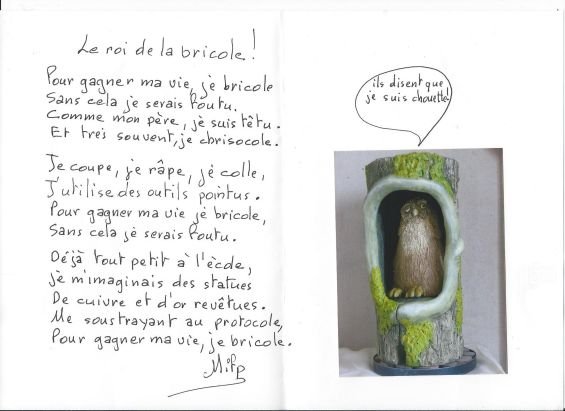 Le roi de la bricole!
Pour gagner ma vie, je bricole
Sans cela je serais foutu.
Comme mon père, je suis têtu.
Et très souvent, je chrisocole.
Je coupe, je râpe, je colle,
J'utilise des outils pointus.
Pour gagner ma vie je bricole,
Sans cela je serais foutu.
Déjà tout petit à l'école,
je m'imaginais des statues
De cuivre et d'or revêtues.
Me soustrayant au protocole,
Pour gagner ma vie, je bricole.
ils disent que
je suis chouette!